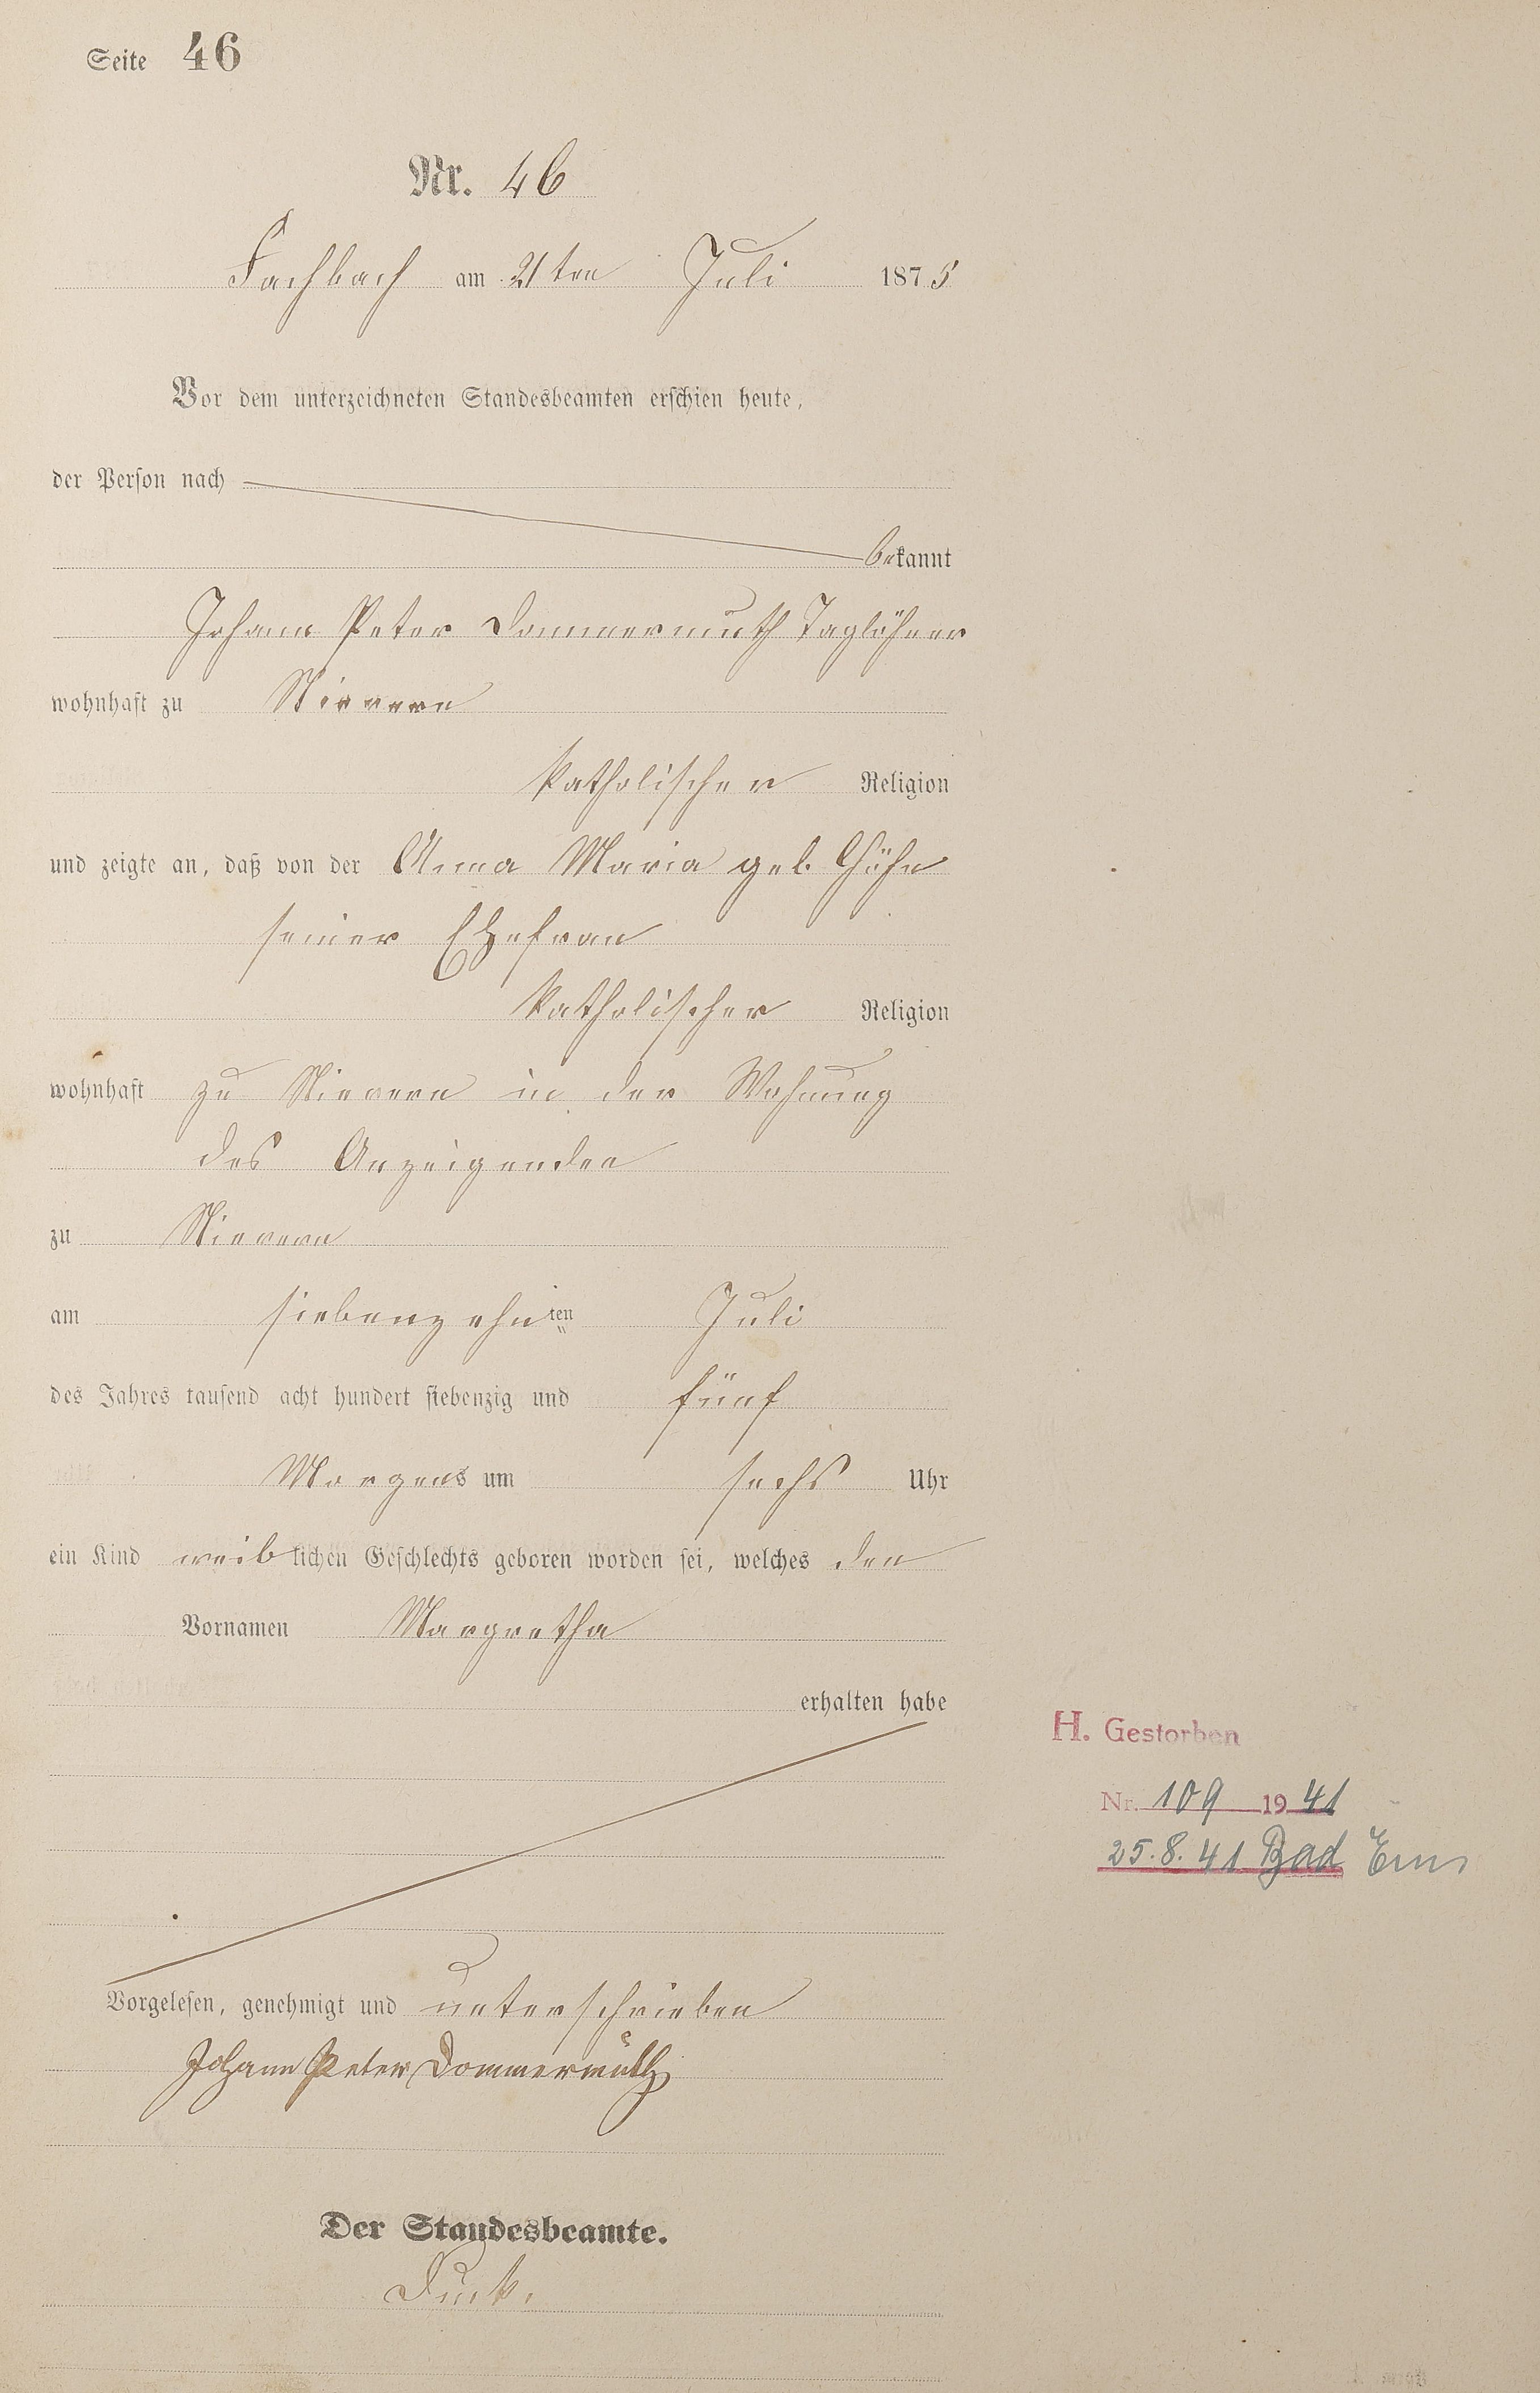 Seite 46
Nr. 46
Fachbach am 21ten Juli 1875
Vor dem unterzeichneten Standesbeamten erschien heute,
der Person nach
bekannt
Johann Peter Dommermuth Taglöhner
wohnhaft zu Nievern
katholischer Religion
und zeigte an, daß von der Anna Maria geb.
seiner Ehefrau
katholischer Religion
wohnhaft zu Nievern in der Wohnung
des Anzeigenden
zu Nievern
am siebenzehnten Juli
des Jahres tausend acht hundert siebenzig und fünf
Morgens um sechs Uhr
ein Kind weiblichen Geschlechts geboren worden sei, welches den
Vornamen Margretha
erhalten habe
H. Gestorben
Nr. 109 1941
25.8.41 Bad Ems
Vorgelesen, genehmigt und unterschrieben
Johann Peter Dommermuth
Der Standesbeamte.